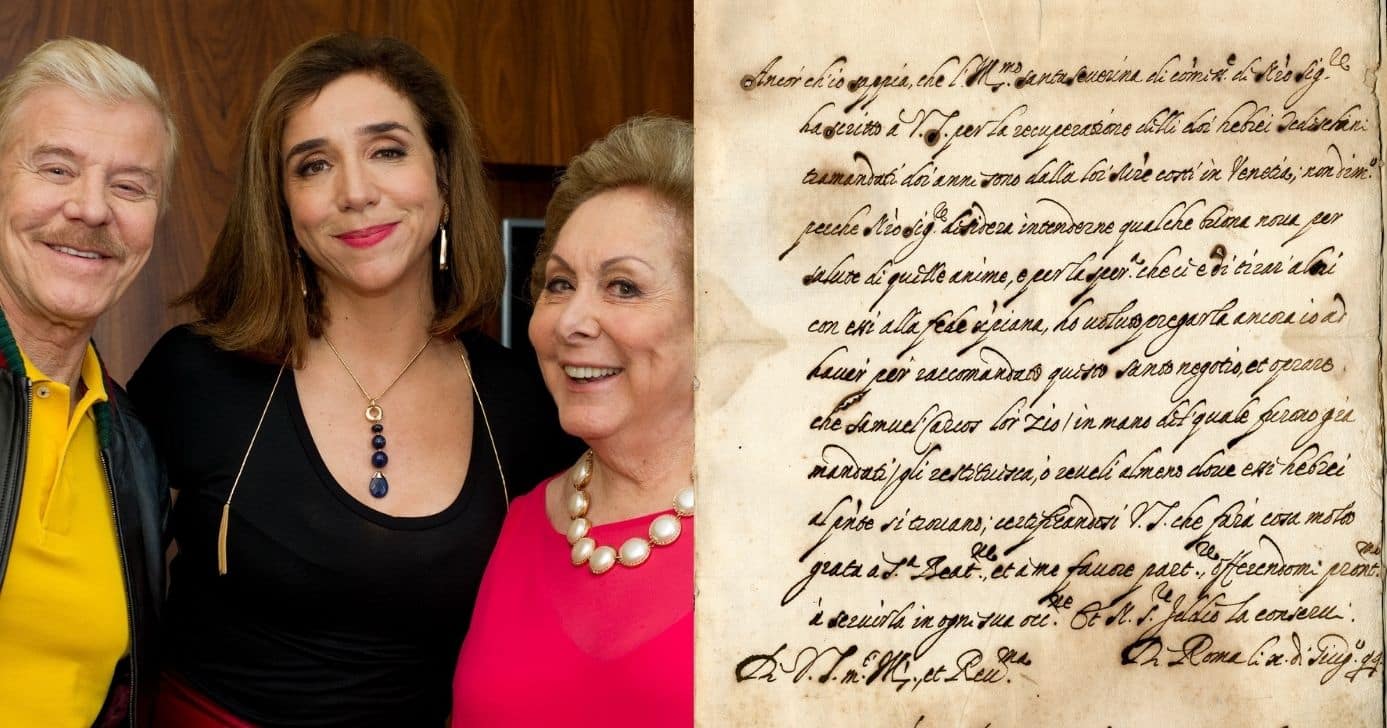 Ancor ch'io sappia, che l'Ill.mo Santaseverina di com.ne di N'ro Sig.re
ha scritto à V. S. per la recuperatione delli doi hebrei
tramandati doi anni sono dalla lor M're costì in Venetia; nondim.o
perche N'ro Sig.re desidera intenderne qualche buona nova per
salute di quelle anime, e per la sper.a che ci è di tirar altri
con essi alla fede xpiana, ho voluto pregarla ancora io ad
haver per raccomandato questo santo negotio, et oprare
che Samuel lor Zio / in mano del quale furono gia
mandati / gli restituisca, ò reveli almeno dove essi hebrei
al p'nte si trovano; certificandosi V. S. che farà cosa molto
grata à S.a Beat.ne, et à me favore part.re, offerendomi pront.mo
à servirla in ogni sua occ.ne Et N. S.re Iddio la conservi.
Di Roma li x. di Giug.o
Di V. S. m.to Ill.re et Rev.ma